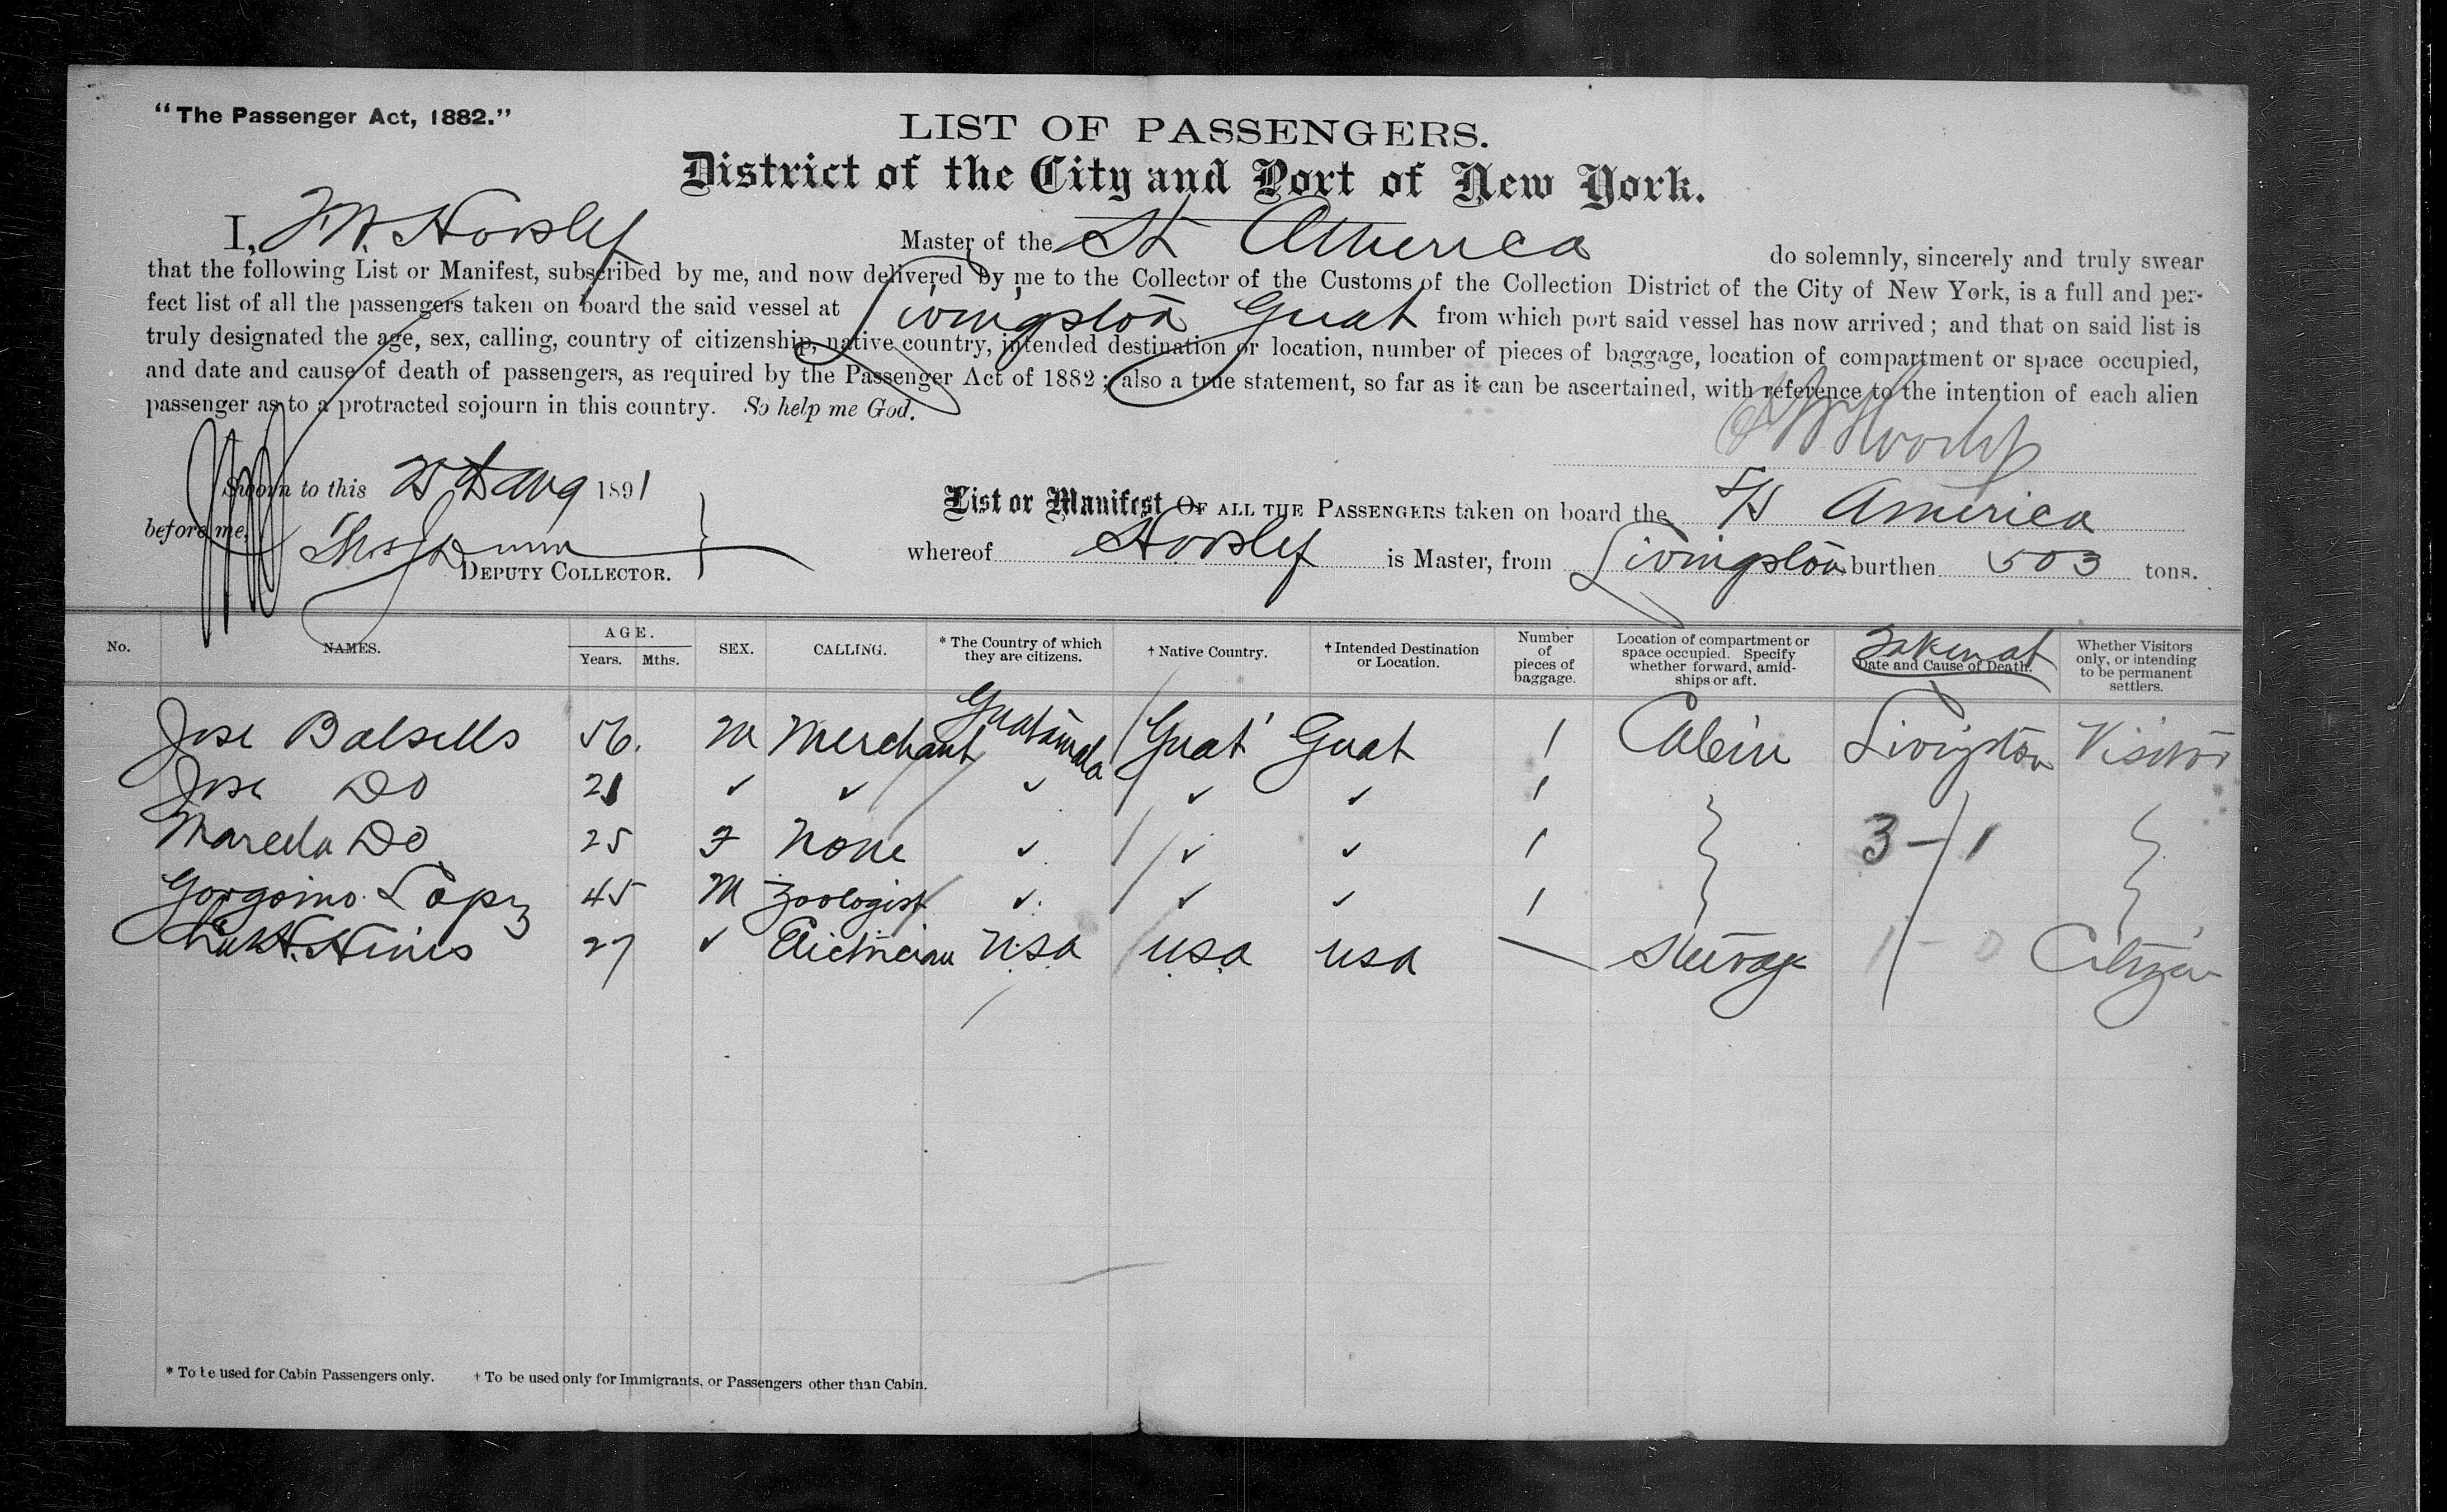 "The Passenger Act, 1882."
LIST OF PASSENGERS.
District of the City and Port of New York.
I, Master of the St America do solemnly, sincerely and truly swear
that the following List or Manifest, subscribed by me, and now delivered by me to the Collector of the Customs of the Collection District of the City of New York, is a full and per-
fect list of all the passengers taken on board the said vessel at Livingston Guat from which port said vessel has now arrived; and that on said list is
truly designated the age, sex, calling, country of citizenship, native country, intended destination or location, number of pieces of baggage, location of compartment or space occupied,
and date and cause of death of passengers, as required by the Passenger Act of 1882; also a true statement, so far as it can be ascertained, with reference to the intention of each alien
passenger as to a protracted sojourn in this country. So help me God.
Sworn to this Aug 1891
before me,
DEPUTY COLLECTOR.
List or Manifest OF ALL THE PASSENGERS taken on board the S/S America
whereof is Master, from Livingston burthen 503 tons.
No. NAMES. AGE. Years. Mths. SEX. CALLING. * The Country of which they are citizens. † Native Country. † Intended Destination or Location. Number of pieces of baggage. Location of compartment or space occupied. Specify whether forward, amidships or aft. Taken at Date and Cause of Death. Whether Visitors only, or intending to be permanent settlers.
Jose Balsells 56. M Merchant Guatamala Guat Guat 1 Cabin Livingston Visitor
Jose Do 21 ✓ ✓ ✓ ✓ ✓ 1
Do 25 F None ✓ ✓ ✓ 1 3-1
45 M Zoologist ✓ ✓ ✓ 1
27 ✓ USA USA USA — Steerage 1-0 Citizen
* To be used for Cabin Passengers only. † To be used only for Immigrants, or Passengers other than Cabin.